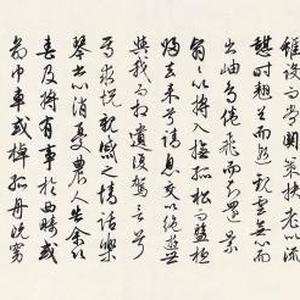 雖設而常關策扶老以流
憩時翹首而遐觀雲無心而
出岫鳥倦飛而知還景
翳々以將入撫孤松而盤桓
歸去來兮請息交以絕遊世
與我而相遺復駕言兮
焉求悅親戚之情話樂
琴書以消憂農人告余以
春及將有事於西疇或
命巾車或棹孤舟既窈